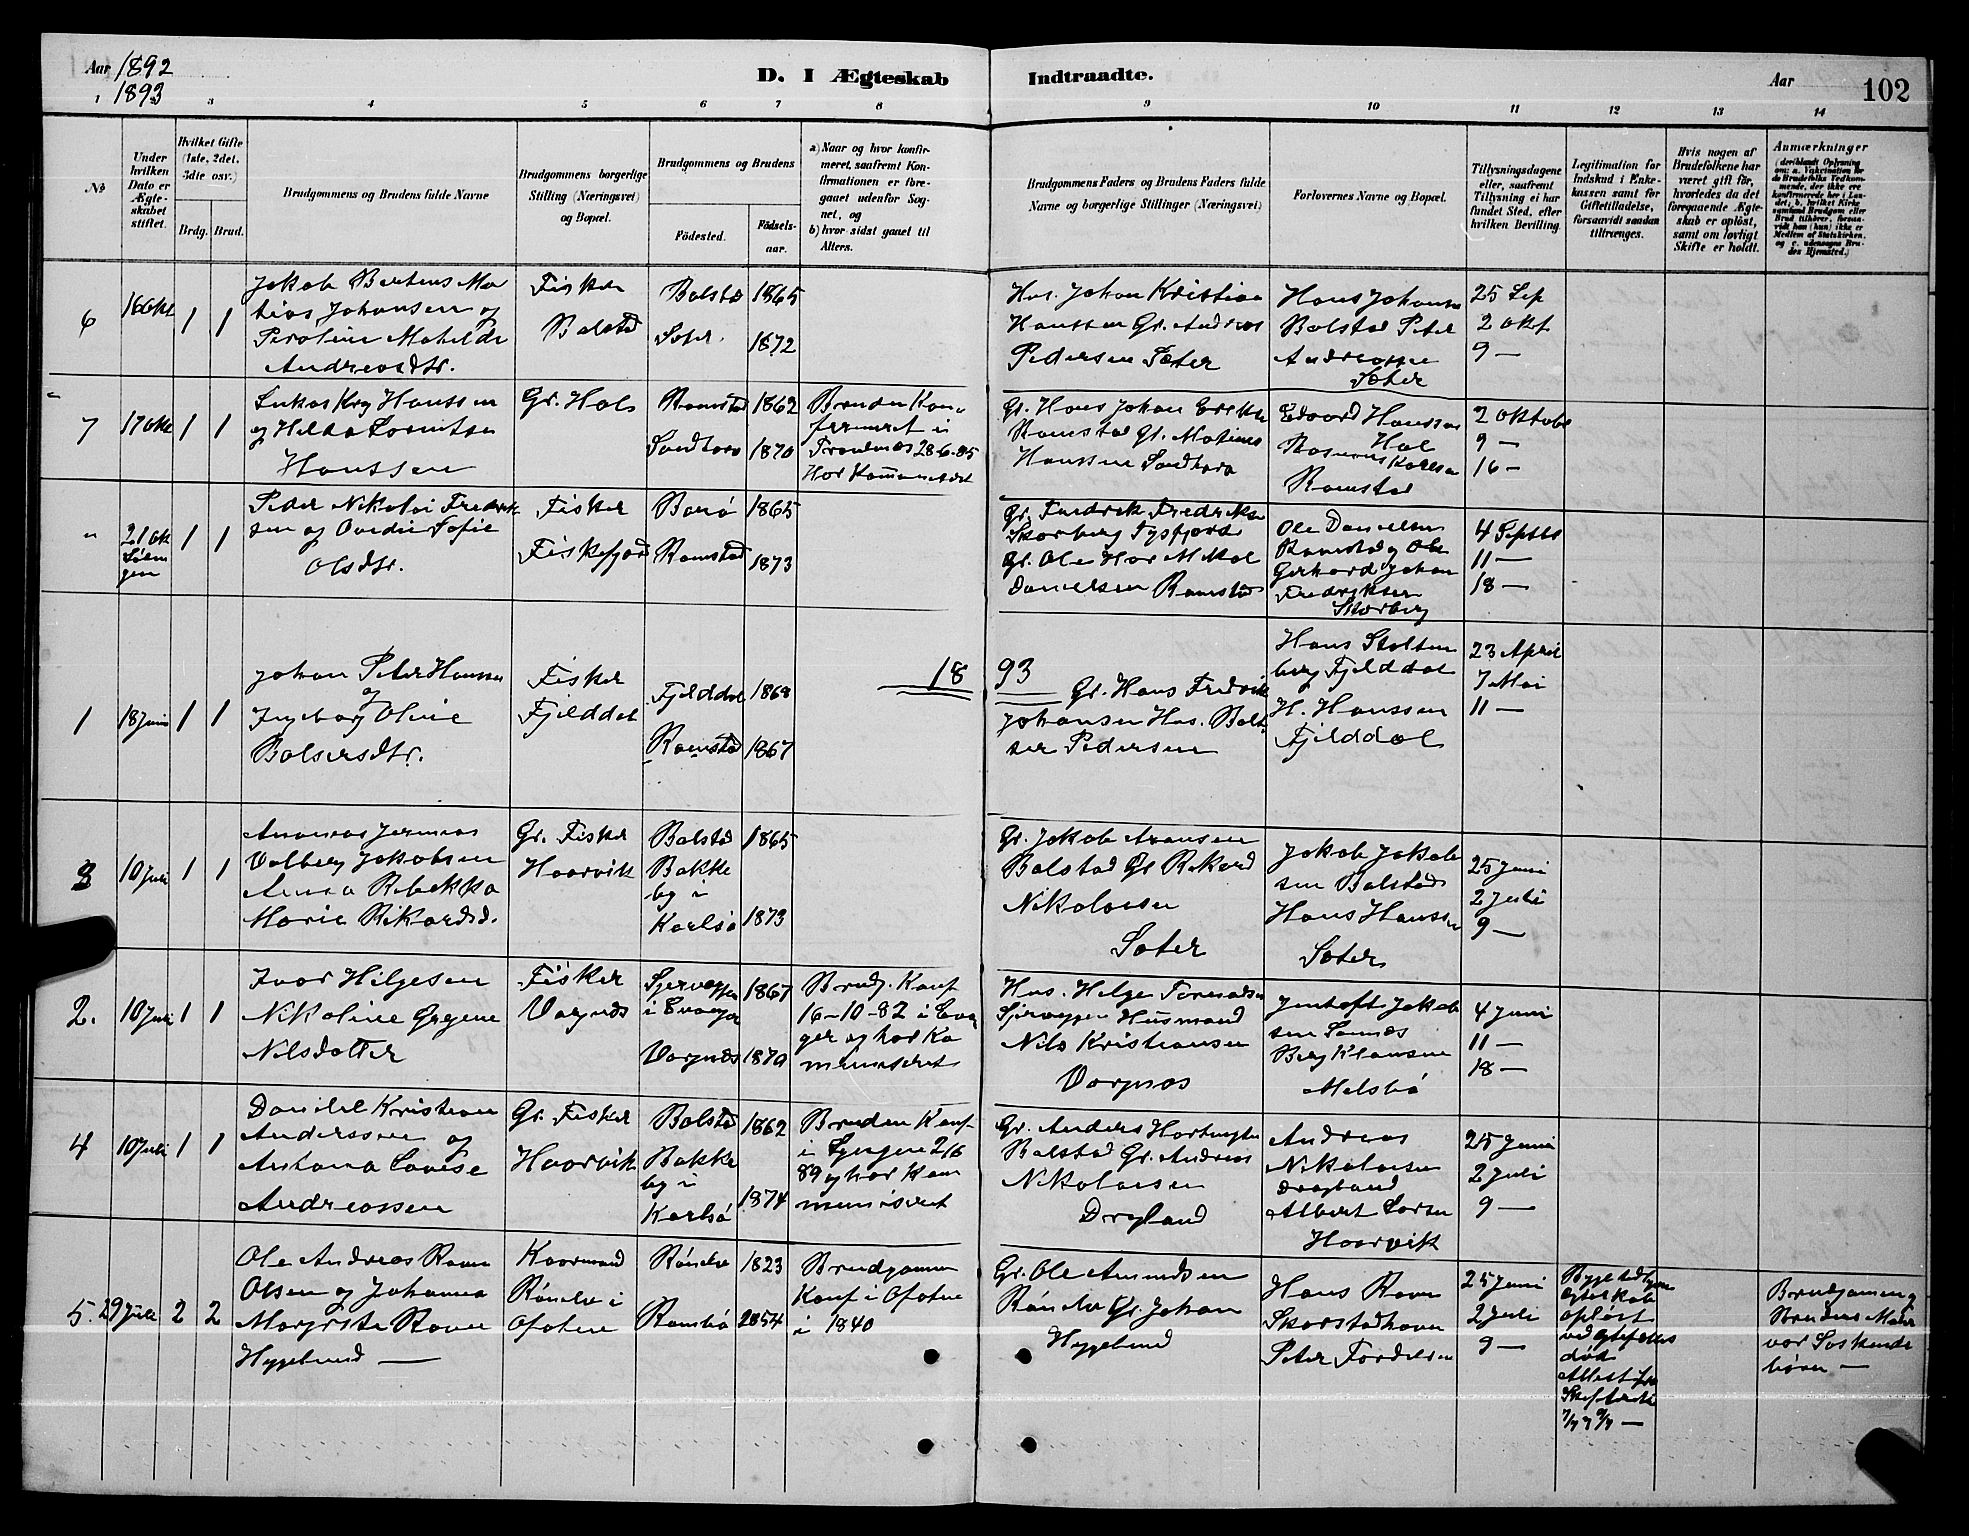 Aar 1892
1893
D. I Ægteskab Indtraadte.
Aar
102
1 3 4 5 6 7 8 9 10 11 12 13 14
№
Under hvilken Dato er Ægteskabet stiftet.
Hvilket Gifte (1ste, 2det, 3dte osv.)
Brdg. Brud.
Brudgommens og Brudens fulde Navne
Brudgommens borgerlige Stilling (Næringsvei) og Bopæl.
Brudgommens og Brudens
Fødested. Fødselsaar.
a) Naar og hvor konfirmeret, saafremt Konfirmationen er foregaaet udenfor Sognet, og
b) hvor sidst gaaet til Alters.
Brudgommens Faders og Brudens Faders fulde Navne og borgerlige Stillinger (Næringsvei)
Forlovernes Navne og Bopæl.
Tillysningsdagene eller, saafremt Tillysning ei har fundet Sted, efter hvilken Bevilling.
Legitimation for Indskud i Enkekassen samt for Giftetilladelse, forsaavidt saadan tiltrænges.
Hvis nogen af Brudefolkene har været gift før, hvorledes da det foregaaende Ægteskab er opløst, samt om lovligt Skifte er holdt.
Anmærkninger
6 16 Okt 1 1
Jakob Bertens Ma
tias Johansen og
Peroline Mathilde
Andreasdtr.
Fisker
Balstad
Balstad 1865
Sæter 1872
Hus. Johan Kristian
Hanssen Gr. Andreas
Pedersen Sæter
Hans Johansen
Balstad Peter
Andreassen
Sæter
25 Sep
2 Okt
9 —
7 17 Okt 1 1
Lukas Krog Hanssen
og Hilda Lornitse
Hanssen
Gr. Hals
Ramstad 1862
Sandtorv 1870
Bruden Kon-
firmeret i
Trondenæs 28-6-85
Har Kommuniceret
Gr. Hans Johan Eriksen
Ramstad Gr. Matias
Hanssen Sandtorv
Edvard Hanssen
Hal
Rasmus Karlsen
Ramstad
2 Oktober
9 —
16 —
" 21 Okt 1 1
Peder Nikolai Fredrik
sen og Ovedie Sofie
Olsdtr.
Fisker
Fiskefjord
Barø 1865
Ramstad 1873
Gr. Fredrik Fredriksen
Skarberg Tysfjord
Gr. Ole Hor M Kol
Danielsen Ramstad
Ole Danielsen
Ramstad og Ole
Gerhard Johan
Fredriksen
Skarberg
4 Septbr
11 —
18 —
1893
1 18 Juni 1 1
Johan Peter Hanssen
og
Ingeborg Oline
Balsersdtr.
Fisker
Fjelddal
Fjelddal 1868
Ramstad 1867
Gr. Hans Fredrik
Johansen Hus. Balt
ser Pedersen
Hans Stolten
berg Fjelddal
H. Hanssen
Fjelddal
23 April
7 Mai
11 —
3 10 Juli 1 1
Andreas Jermias
Valberg Jakobsen
Anna Rebekka
Marie Rikardsd.
Gr. Fisker
Haarvik
Balstad 1865
Bakke
by i
Karlsø 1873
Gr. Jakob Aronsen
Balstad Gr Rikard
Nikolaisen
Sæter
Jakob Jakob
sen Balstad
Hans Hanssen
Sæter
25 Juni
2 Juli
9 —
2. 10 Juli 1 1
Ivar Hilgesen
Nikoline Grgine
Nilsdotter
Fisker
Vargnæs
1867
i Evanger
Vargnæs 1870
Brudg. Konf
16-10-82 i Evan
ger og har Ko
muniseret
Hus. Helge
Husmand
Nils Kristiansen
Vargnæs
Jentoft Jakob
sen Sannæs
Berg Klausen
Melsbø
4 Juni
11 —
18 —
4 10 Juli 1 1
Daniel Kristian
Anderssen og
Antona Lovise
Andreassen
Gr. Fisker
Haarvik
Balstad 1862
Bakke
by i
Karlsø 1874
Bruden Konf
i Lyngen 2/6
89 og har Kom
muniseret
Gr. Anders Hartvigsen
Balstad Gr. Andreas
Nikolaisen
Drgland
Andreas
Nikolaisen
Dragland
Albert Larsen
Haarvik
25 Juni
2 Juli
9 —
5. 29 Juli 2 2
Ole Andreas Ravn
Olsen og Johanna
Margrete Ravn
Hygelund —
Kaarmand
Røndæ i
Ofoten
Røndæ 1823
Rambø 1854
Brudgommen
Konf i Ofoten
i 1840
Gr. Ole Amundsen
Røndæ Gr. Johan
Hygelund
Hans Ravn
Skarstadhavn
Peter Fordelsen
25 Juni
2 Juli
9 —
Ægteskab
opløst
ved Ægtefælles
død
Brudgommen og
Brudens Moder
var Søskende
børn —